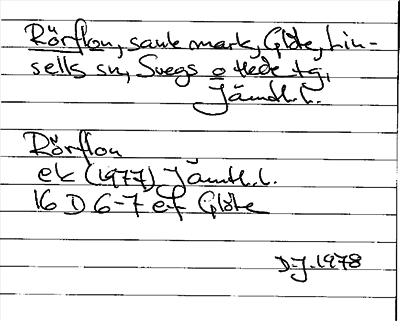 Rörflon, sank mark, Glöte, Lin-
sells sn, Svegs o Hede tg,
Jämtl.l.
Rörflon
ek (1977) Jämtl.l.
16 D 6-7 ef Glöte
D.J. 1978